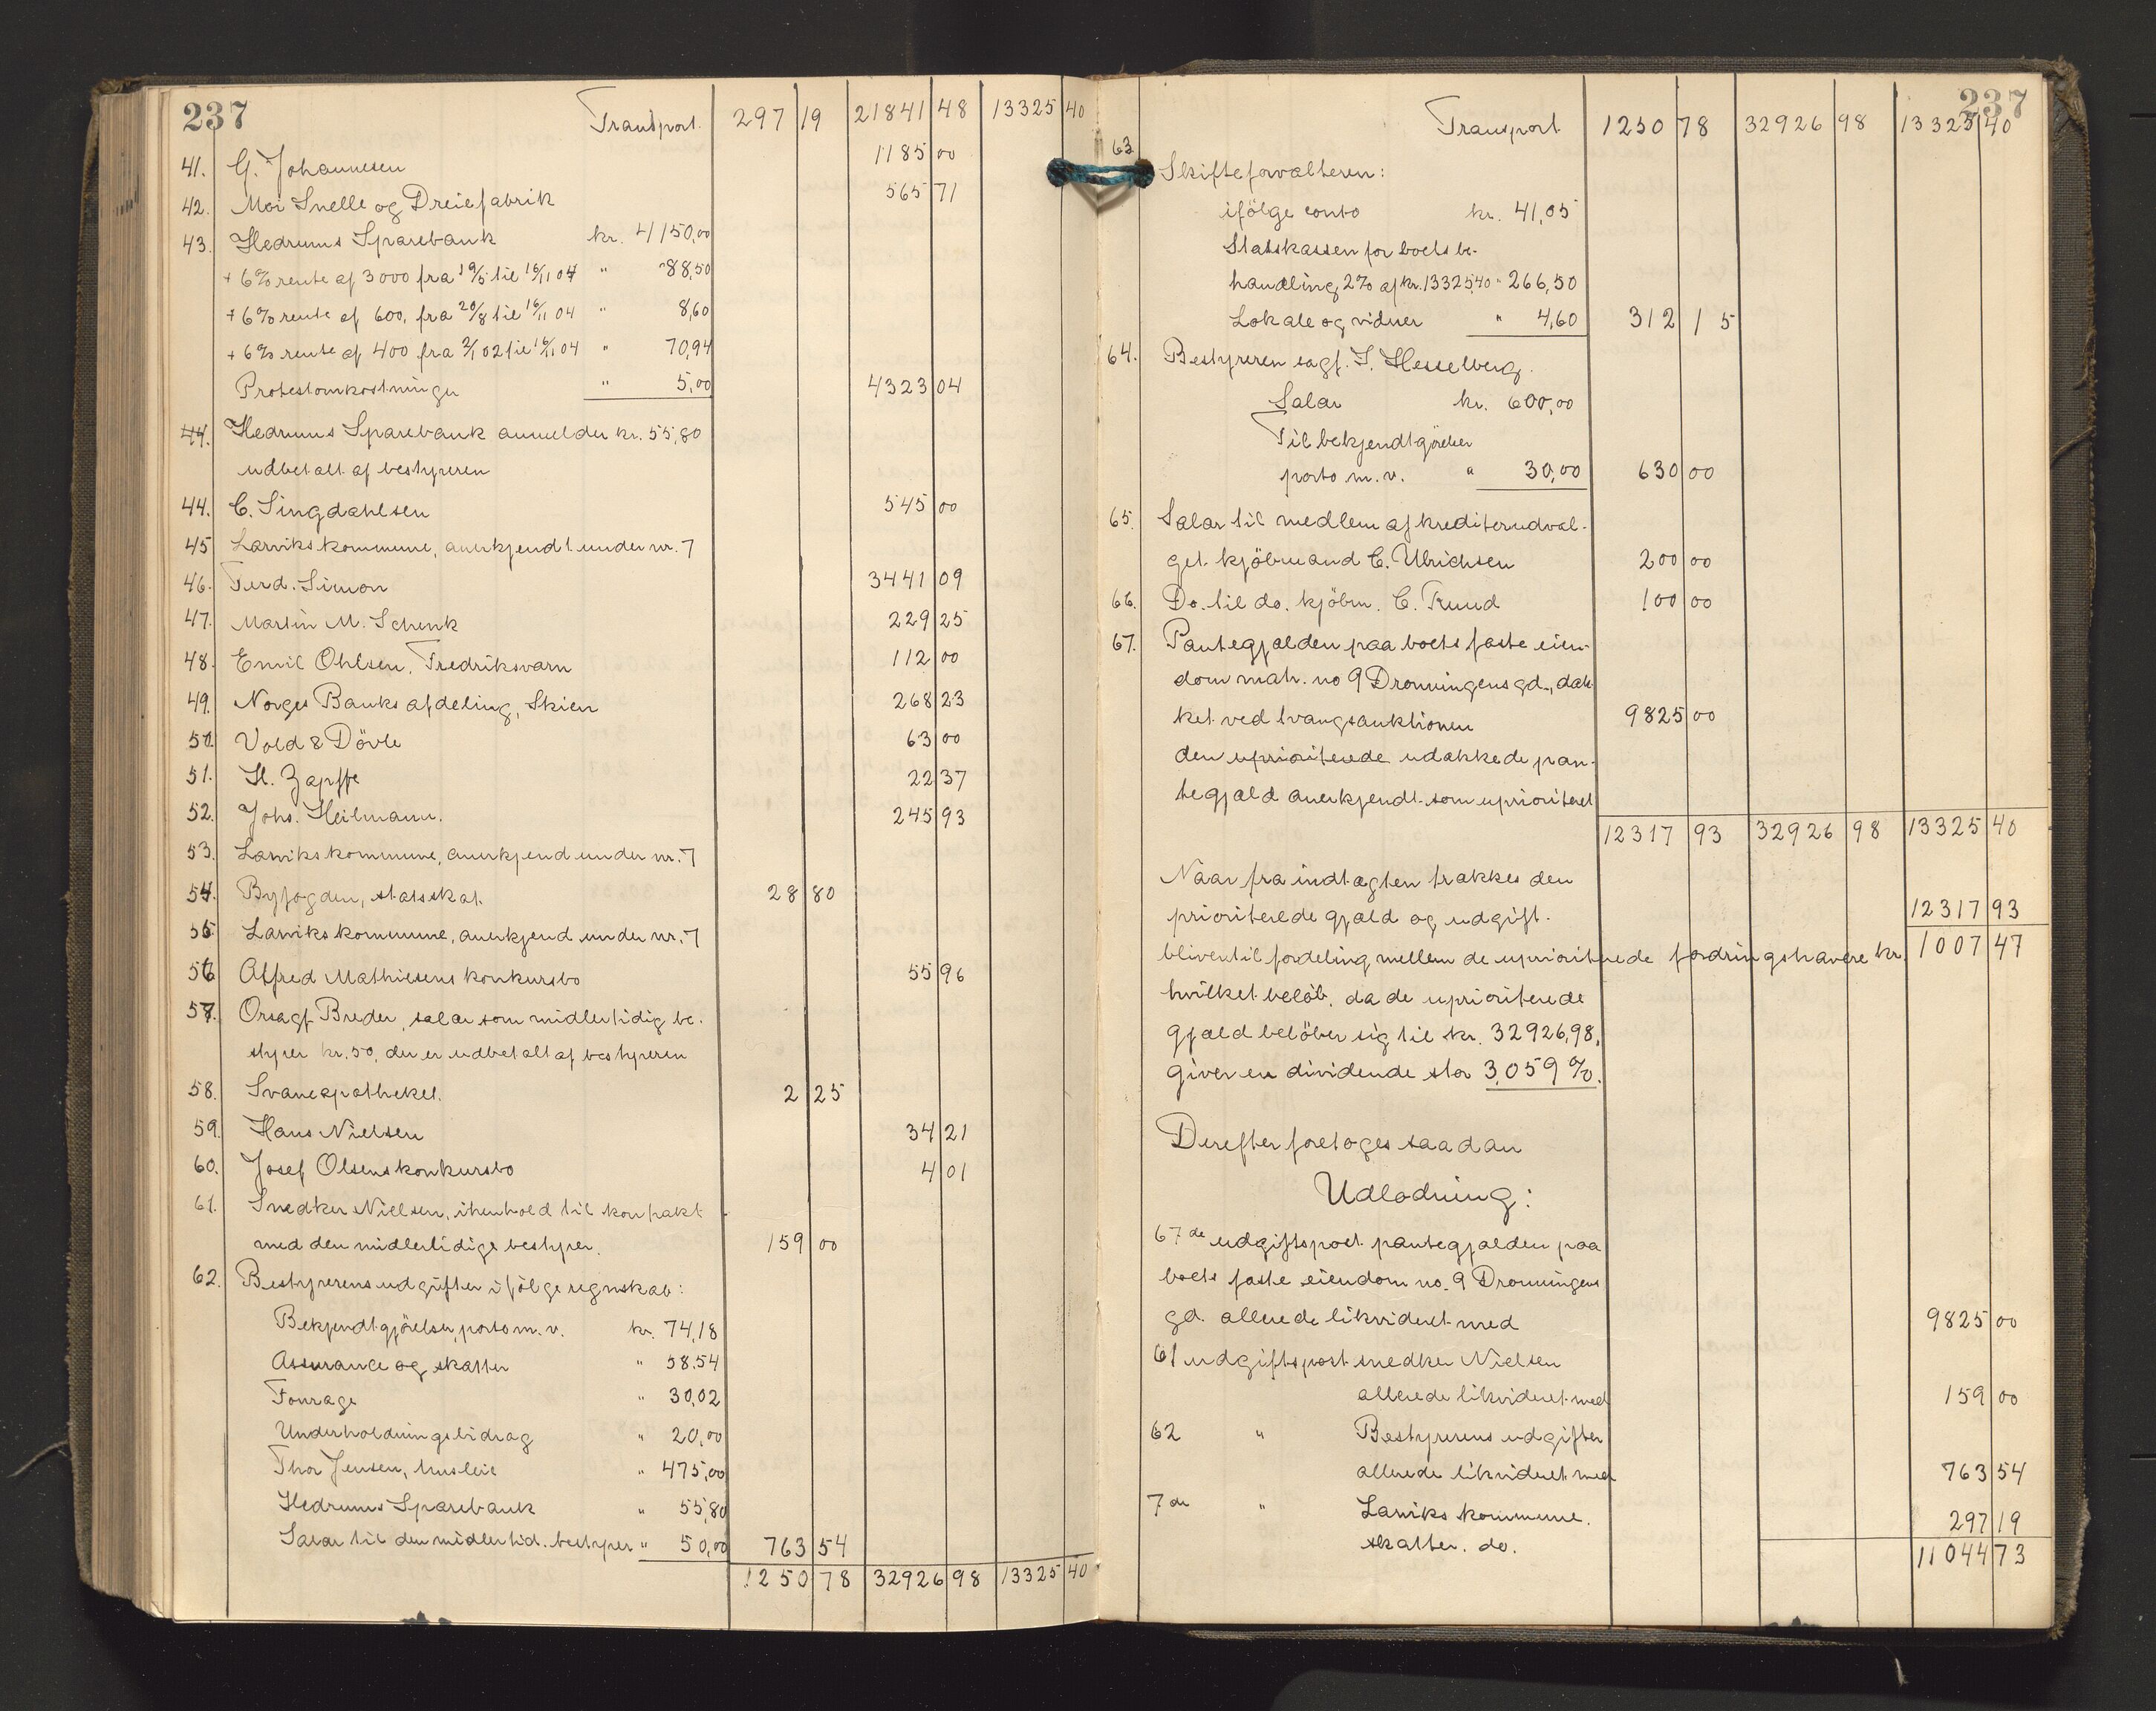 237
Transport. 297 19 21841 48 13325 40
41. G. Johannesen 1185 00
42. Moi Snelle og Dreiefabrik 565 71
43. Hedrums Sparebank kr. 4150,00
+ 6% rente af 3000 fra 19/5 til 16/11 04 " 88,50
+ 6% rente af 600, fra 20/8 til 16/11 04 " 8,60
+ 6% rente af 400 fra 2/1 02 til 16/11 04 " 70,94
Protestomkostninger " 5,00 4323 04
44. Hedrums Sparebank anmelder kr. 55,80
udbetalt af bestyreren
44. C. Singdahlsen 545 00
45 Larviks kommune, anerkjendt under nr. 7
46. Ferd. Simon 3441 09
47. Martin M. Schenk 229 25
48. Emil Ohlsen, Fredriksvarn 112 00
49. Norges Banks afdeling, Skien 268 23
50. Vold & Dövle 63 00
51. H. Zapffe 22 37
52. Johs. Heilmann. 245 93
53. Larviks kommune, anerkjend under nr. 7
54. Byfogden, statsskat. 28 80
55 Larviks kommune, anerkjend under nr. 7
56 Alfred Mathiesens konkursbo 55 96
57. Orsagf. Breder, salær som midlertidig be-
styrer kr. 50, der er udbetalt af bestyreren
58. Svaneapotheket. 2 25
59. Hans Nielsen 34 21
60. Josef Olsens konkursbo 4 01
61. Snedker Nielsen, i henhold til kontrakt
med den midlertidige bestyrer. 159 00
62. Bestyrerens udgifter ifölge regnskab:
Bekjendtgjörelser, porto m. v. kr. 74,18
Assurance og skatter " 58.54
Fourage " 30,02
Underholdningsbidrag " 20,00
Thor Jensen, husleie " 475,00
Hedrums Sparebank " 55,80
Salær til den midlertid. bestyrer " 50,00 763 54
1250 78 32926 98 13325 40
237
Transport. 1250 78 32926 98 13325 40
63.
Skifteforvalteren:
ifölge conto kr. 41,05
Statskassen for boets be-
handling 2% af kr. 13325,40 " 266,50
Lokale og vidner " 4,60 312 15
64. Bestyreren sagf. J. Hesselberg.
Salær kr. 600,00
Til bekjendtgörelser
porto m. v. " 30,00 630 00
65. Salær til medlem af krediterudval-
get kjöbmand C. Ulrichsen 200 00
66. Do. til do. kjöbm. C. Ruud 100 00
67. Pantegjælden paa boets faste eien-
dom matr. no 9 Dronningens gd., dæk-
ket ved tvangsauktionen 9825 00
den uprioriterede udækkede pan-
tegjæld anerkjendt som uprioriteret
12317 93 32926 98 13325 40
Naar fra indtægten trækkes den
prioriterede gjæld og udgift. 12317 93
bliver til fordeling mellem de uprioriterede fordringshavere kr. 1007 47
hvilket belöb, da de uprioriterede
gjæld belöber sig til kr. 32926,98,
giver en dividende stor 3,059 %.
Derefter foretoges saadan
Udlodning:
67de udgiftspost pantegjælden paa
boets faste eiendom no. 9 Dronningens
gd. allerede likvideret med 9825 00
61 udgiftspost snedker Nielsen
allerede likvideret med 159 00
62 " Bestyrerens udgifter
allerede likvideret med 763 54
7de " Larviks kommune. 297 19
skatter. do.
11044 73